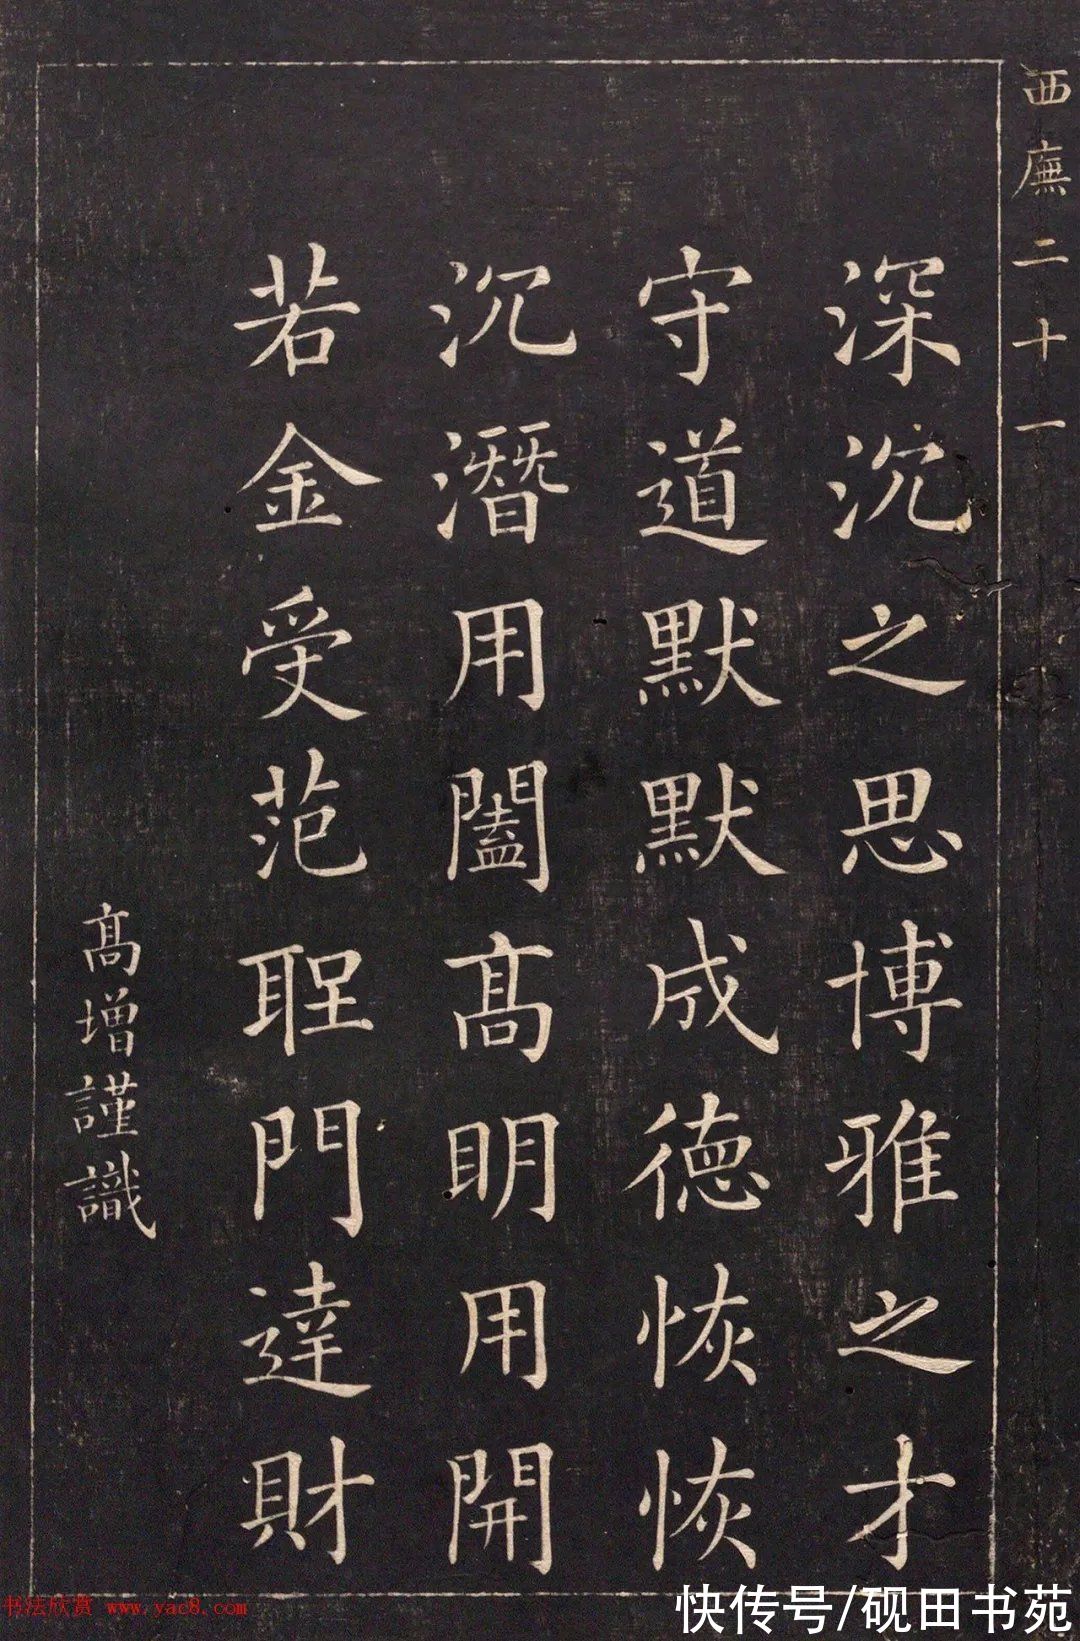 西廡二十一
深沉之思博雅之才
守道默默成德恢恢
沉潛用闔高明用開
若金受范聖門達財
高增謹識
书法欣赏 www.yac8.com
快传号/砚田书苑